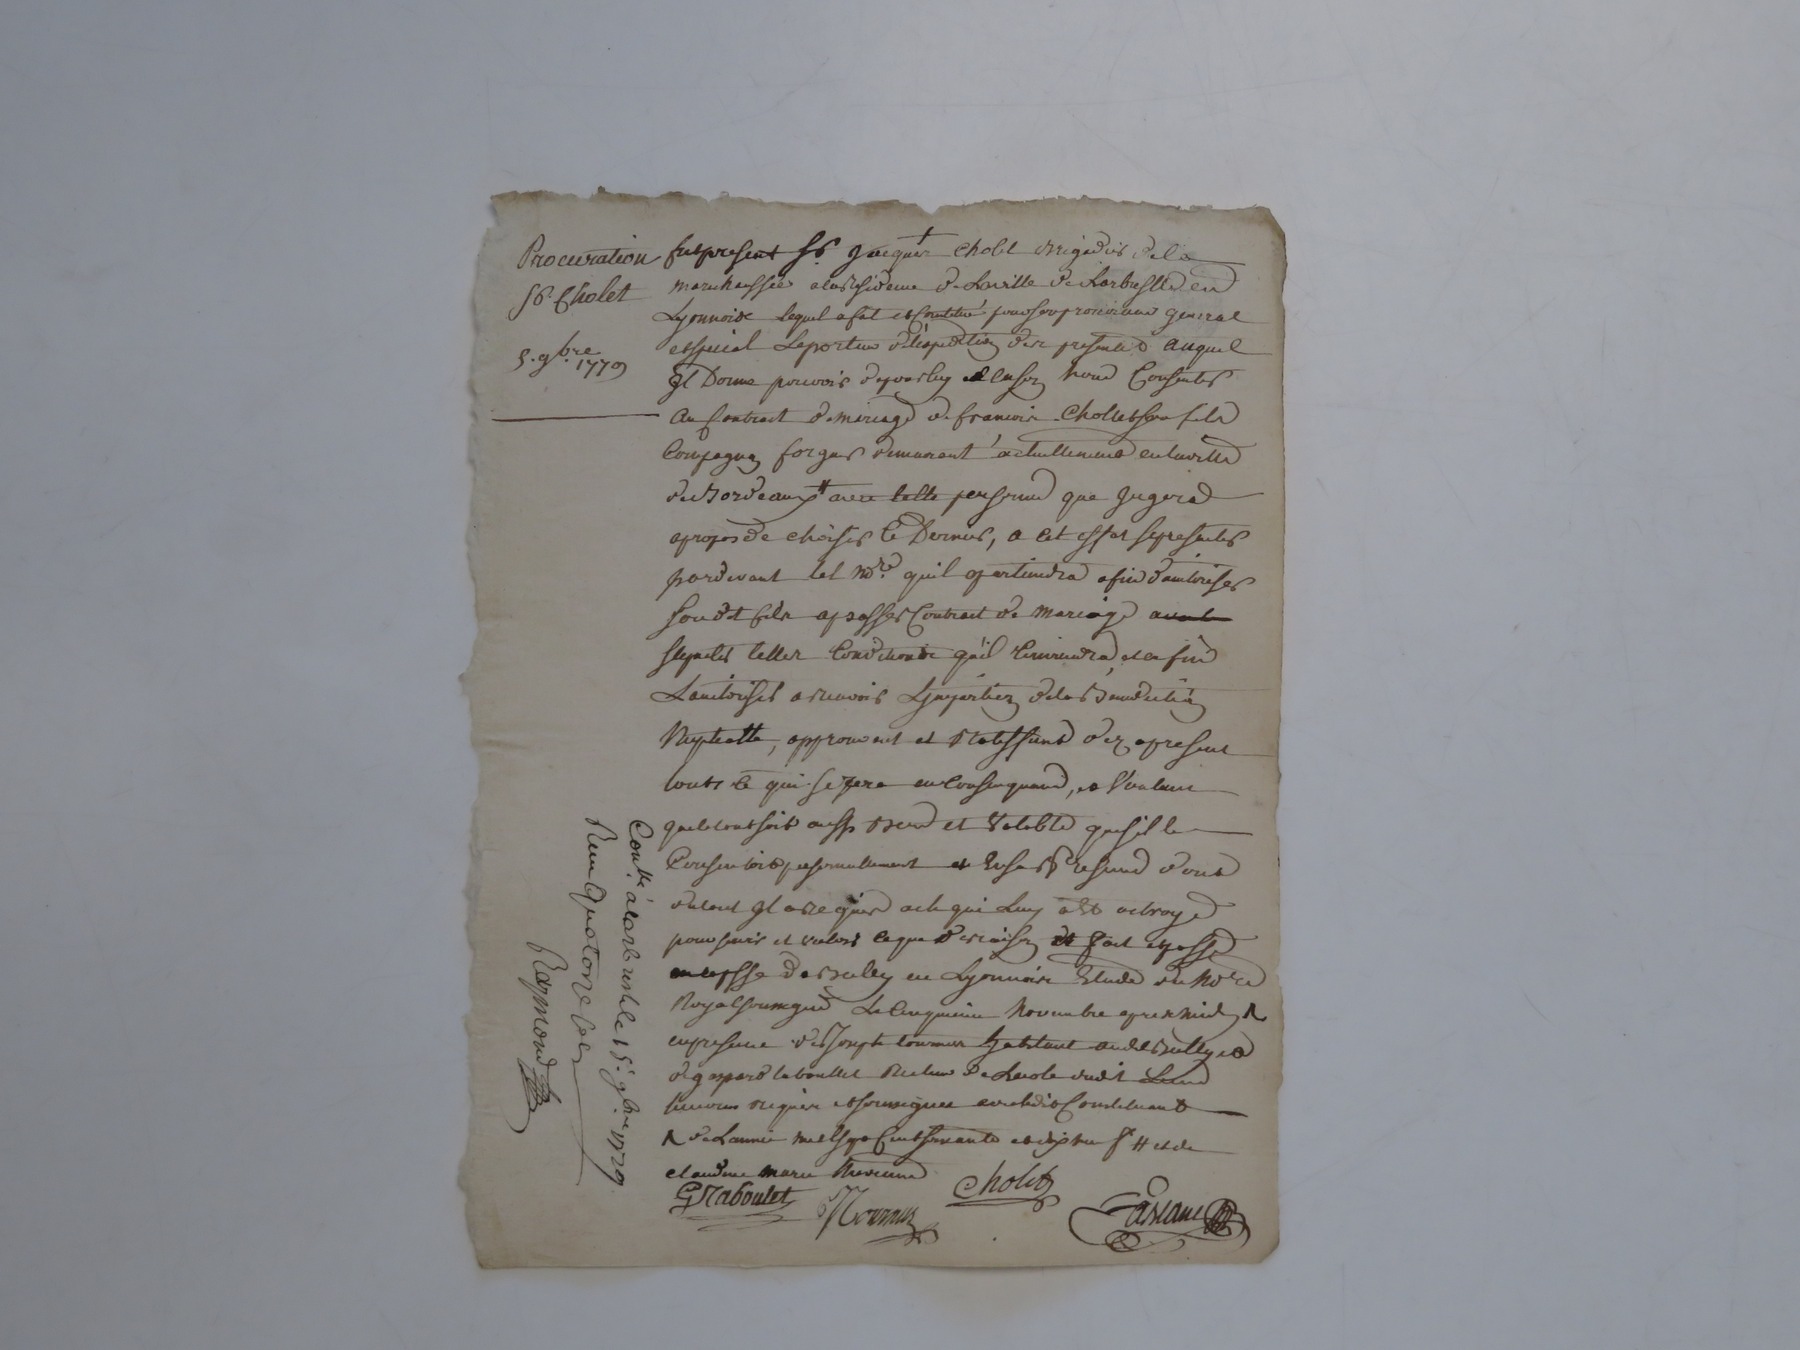 Procuration
Sr. Cholet
5. 9bre 1779
Fut present Sr. Jacques Cholet Brigadier de la
marechaussée a la residence de la ville de Larbresle en
Lyonnois lequel a fait et constitué pour son procureur general
et special le porteur d'expedition des presentes auquel
Il Donne pouvoir de pour luy et en son nom Consentir
au Contract de mariage de francois Chollet son fils
Compagnon forgeur demeurant actuellement en la ville
de Bordeaux # avec telle personne que Jugera
apropos de choisir Ce Dernier, a cet effet se presenter
pardevant tel Nore. quil apartiendra afin d'autoriser
son dit fils a passer Contract de mariage
sous telles Conditions qu'il Conviendra, et enfin
L'autoriser a recevoir L'impartion de la Benediction
Nuptialle, approuvant et Ratiffiant dez apresent
tout ce qui se fera en Consequence, et Voulant
que le tout soit aussy Bon et Valable que s'il le
Consentoit personnellement et En sa Presence dont
du tout Il a requis acte qui Luy a été octroyé
pour servir et valoir ce que de raison fait et passé
de Bully en Lyonnois Etude du Nore
Royal soussigné Le Cinquieme Novembre apres midy ^
en presence de Joseph tournus habitant audit Bully et
de gaspard raboullet Recteur de Lecole dudit Lieu
temoins requis et soussignés avec ledit Constituant
^ de L'année mil sept Cent soixante et dix neuf # et de
claudine marie
G Raboulet Tournus Cholet
Contlé. a Larbresle le 15. 9bre 1779
Reçu Quatorze sols
Raymond